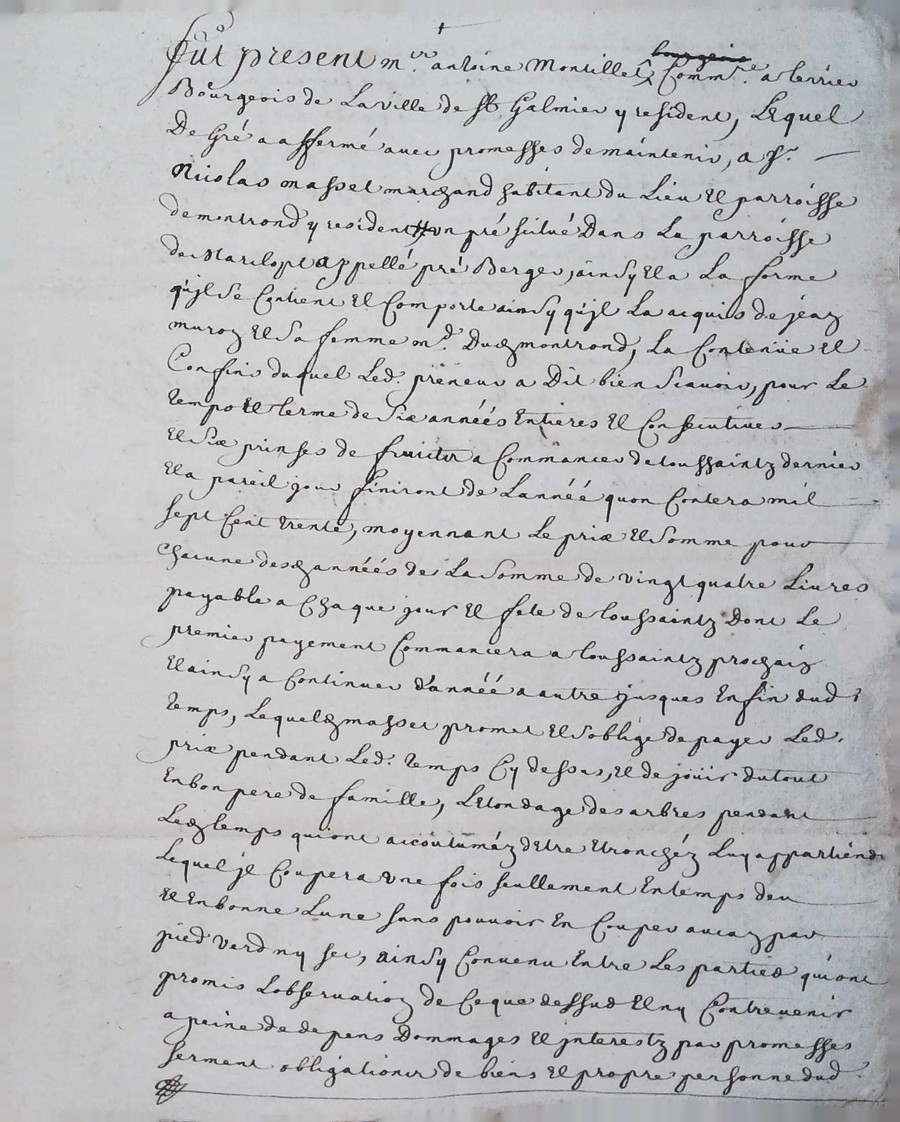 bourgeois
fut present mr. antoine Montillet Commre. a terrier
Bourgeois de La ville de St Galmier y resident, Lequel
De Gré a affermé avec promesses de maintenir, a sr.
Nicolas masset marchand habitant du Lieu et parroisse
de montrond y resident un pré scitué Dans La parroisse
de appellé pré Berger, ainsy et a La forme
qu'jl se Contient et Comporte ainsy qu'jl La acquis de jean
et Sa femme md. Dud montrond, La Contenüe et
Confins duquel Led. preneur a Dit bien scavoir, pour Le
temps et terme de Six années Entieres et Consecutives
et Six prinses de fruicts a Commancer de toussaintz dernier
et a pareil jour finiront de L'année quon Contera mil
sept Cent trente, moyennant Le prix et Somme pour
chacune desd années de La Somme de vingt quatre Livres
payable a Chaque jour et fete de toussaintz Dont Le
premier payement Commancera a toussaintz prochain
et ainsy a Continuer d'année a autre jusques En fin dud.
temps, Lequeld masset promet et s'oblige de payer Led.
prix pendant Led. temps Cy dessus, et de joüir du tout
En bon pere de famille, Letondage des arbres pendant
Led temps qui ont accoutuméz detre etronchéz Luy appartiendra
Lequel jl Coupera une fois seullement En temps deu
et En bonne Lune sans pouvoir En Couper aucun par
pied verd ny sec, ainsy Convenu Entre Les parties qui ont
promis L'observation de Ce que dessus et ny Contrevenir
a peine de depens Dommages et jnterestz par promesses
serment obligations de biens et propre personne dud.